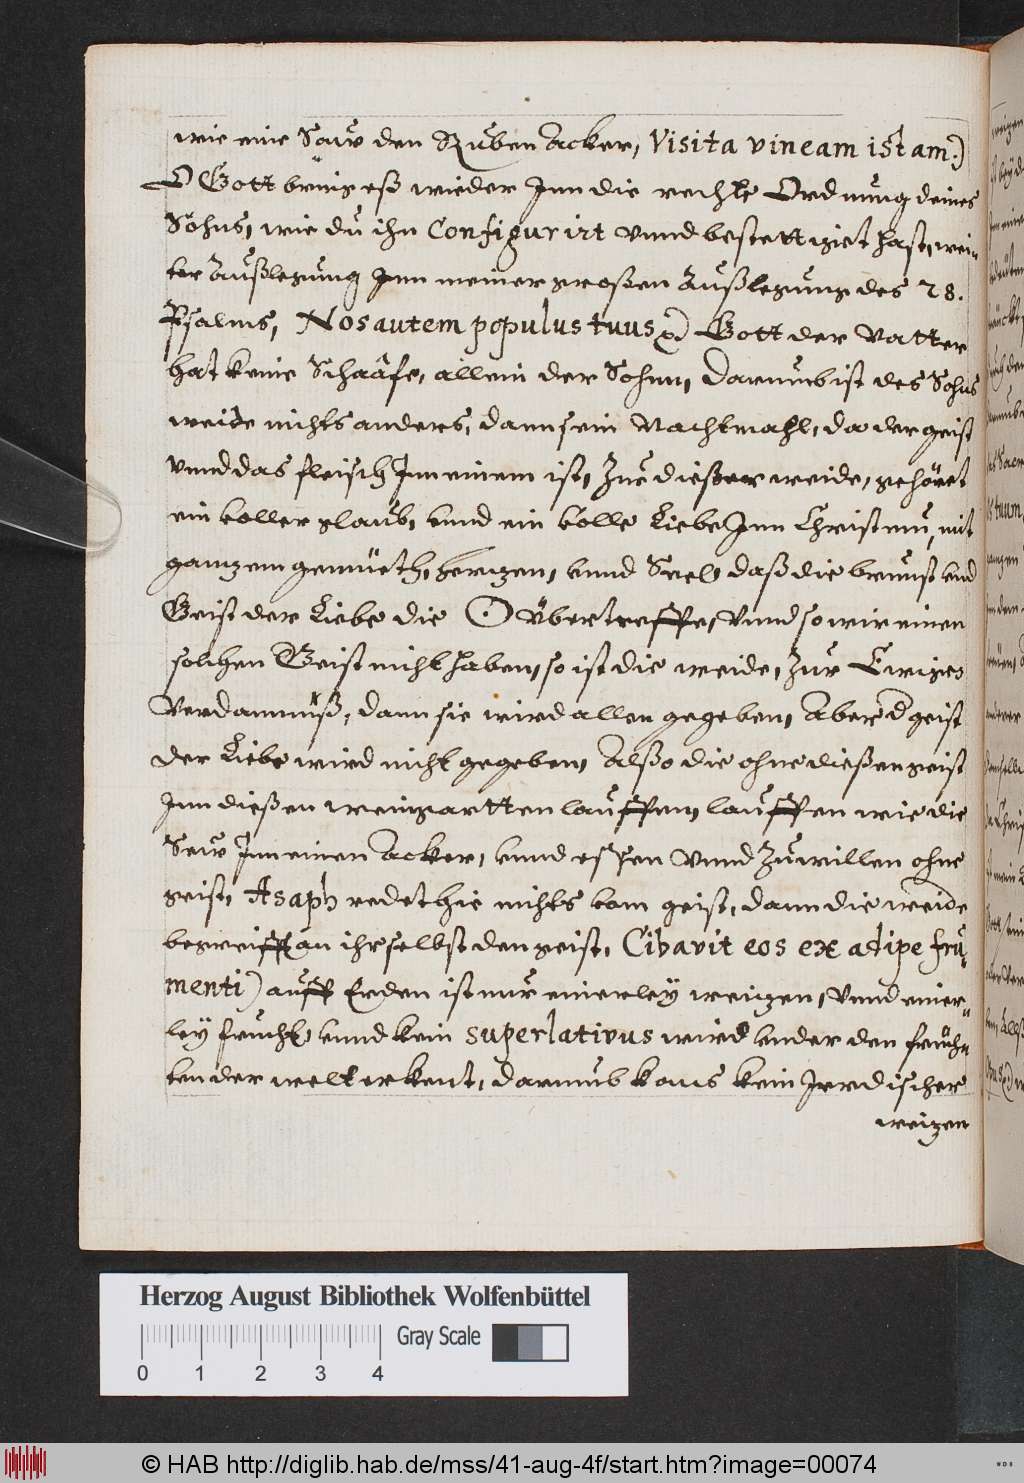 wie eine Sauw den Ruben Acker, Visita vineam istam.)
O Gott bring eß wieder Inn die rechte Ordnung deines
Sohns, wie du ihn Configurirt vnnd bestettiget hast, wei„
ter Außlegung Inn meiner großen Außlegung des 78.
Psalms, Nos autem populus tuus Gott der Vatter
hat keine Schaafe, allein der Sohnn, Darumb ist des Sohns
weide nichts anders, dann sein Nachtmahl, da der geist
vnnd das fleisch Inn einem ist, Zue dießer weide, gehöret
ein voller glaub, vnnd ein volle Liebe Inn Christum, mit
gantzem gemüeth, hertzen, vnnd Seel, daß die brunst vnd
Geist der Liebe die ☉ vbertreffe, Vnnd so wir einen
solchen Geist nicht haben, so ist die weide, zur Ewigen
Verdamnuß, dann sie wird allen gegeben, Aber d geist
der Liebe wird nicht gegeben, Alßo die ohne dießen geist
Inn dießen weingartten lauffen, lauffen wie die
Seuw Inn einen Acker, vnnd essen vnnd Zuwillen ohne
geist, Asaph redet hie nichts vom geist, dann die weide
begreifft an ihr selbst den geist, Cibavit eos ex adipe fru„
menti) auff Erden ist nur einerley weitzen, Vnnd einer„
ley frucht, vnnd kein superlativus wird vnder den früch„
ten der welt erkent, darumb kans kein Irrdischer
weitzen
Herzog August Bibliothek Wolfenbüttel
Gray Scale
0 1 2 3 4
© HAB http://diglib.hab.de/mss/41-aug-4f/start.htm?image=00074